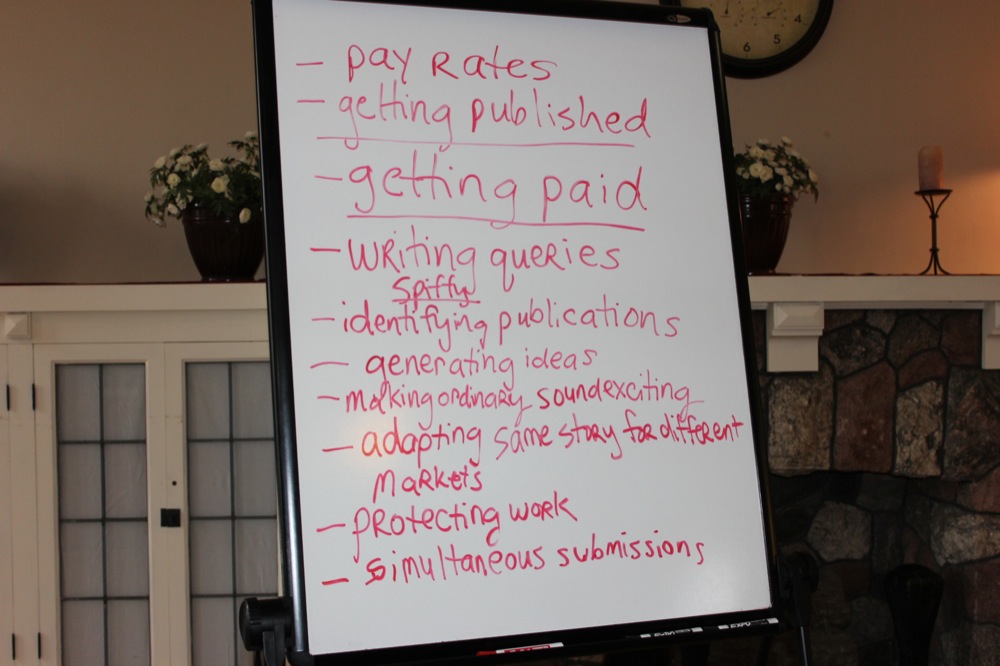 - pay Rates
- getting published
- getting paid
- writing queries
spiffy
- identifying publications
- generating ideas
- making ordinary sound exciting
- adapting same story for different
markets
- protecting work
- simultaneous submissions
4
5
6
EXPO
EXPO